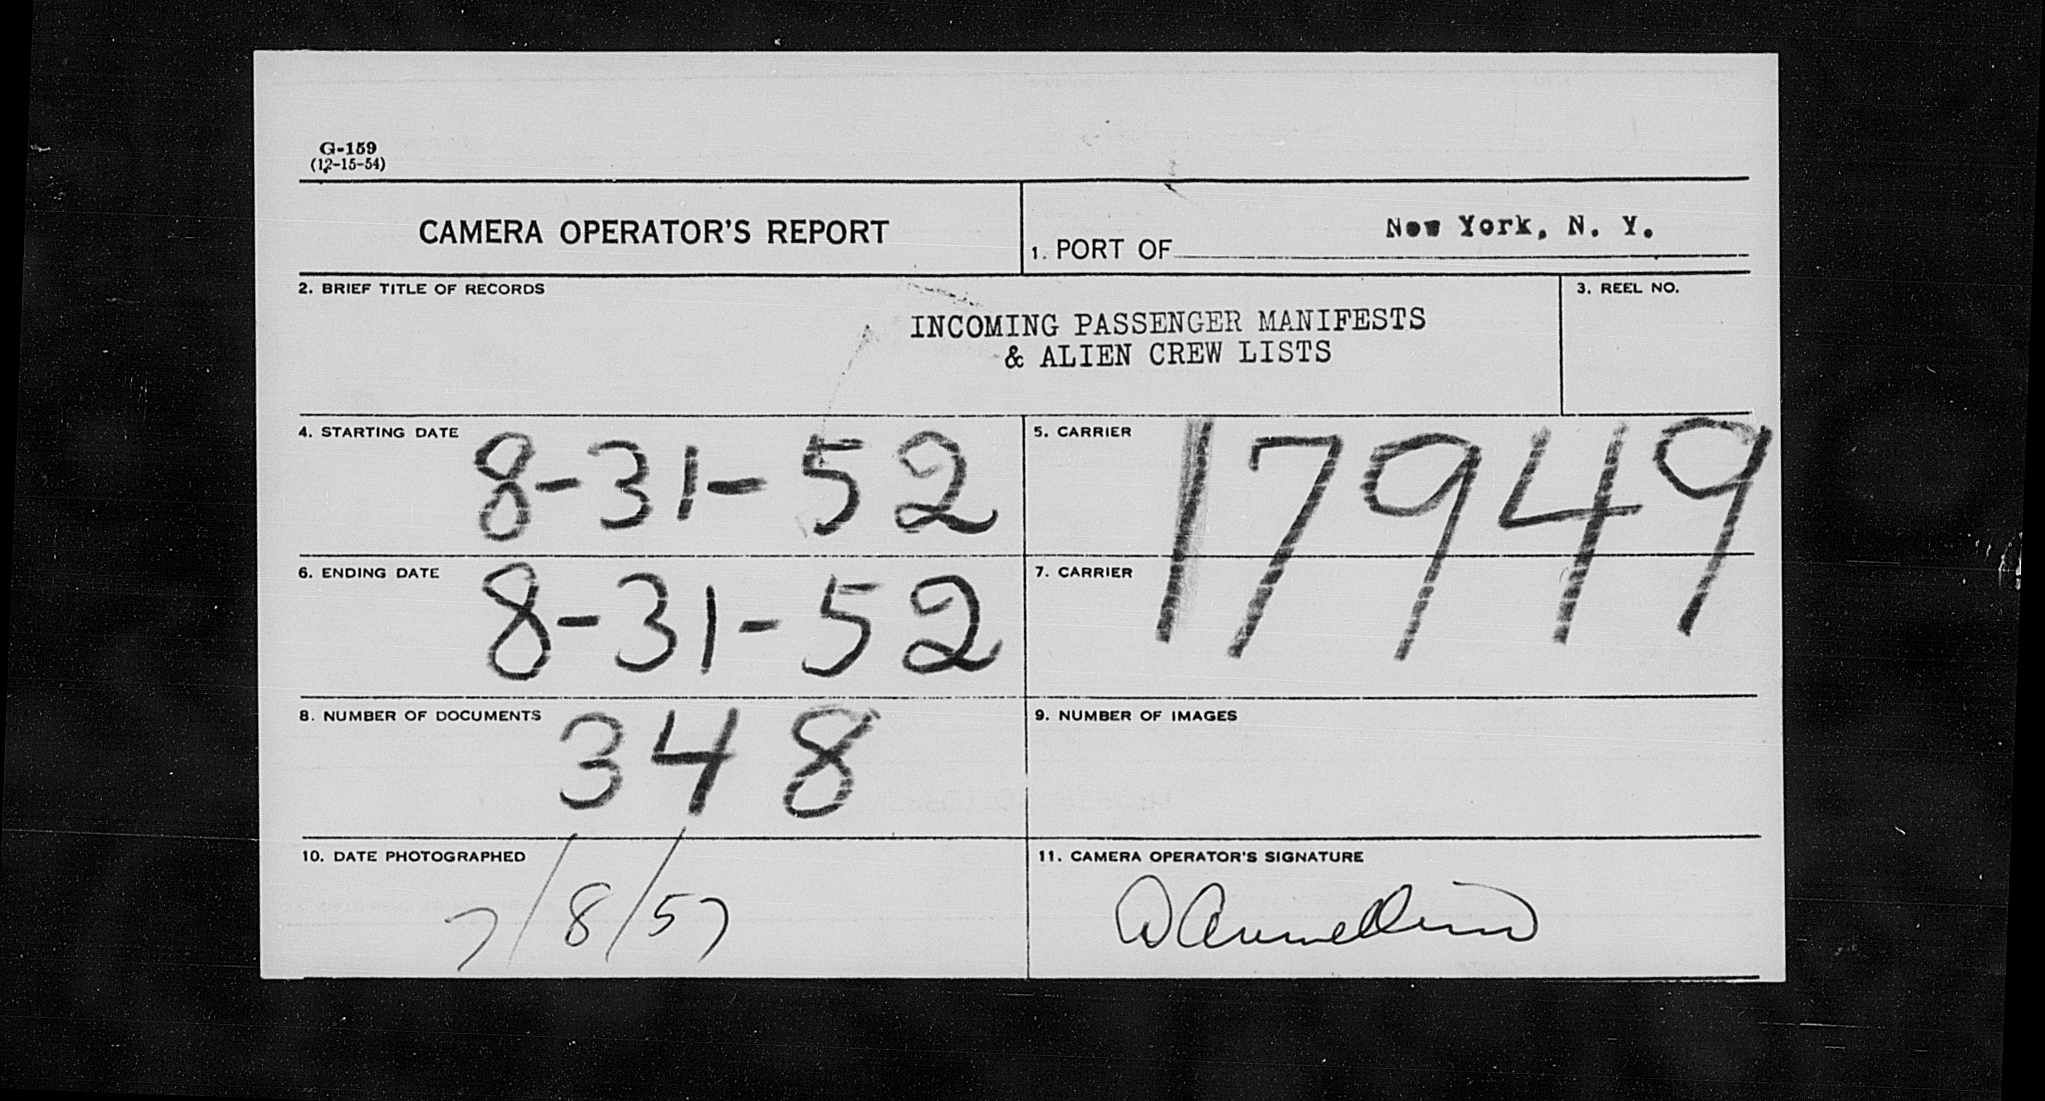 G-159
(12-15-54)
CAMERA OPERATOR'S REPORT
1. PORT OF New York, N. Y.
2. BRIEF TITLE OF RECORDS
INCOMING PASSENGER MANIFESTS
& ALIEN CREW LISTS
3. REEL NO.
4. STARTING DATE 8-31-52
5. CARRIER
17949
6. ENDING DATE 8-31-52
7. CARRIER
8. NUMBER OF DOCUMENTS 348
9. NUMBER OF IMAGES
10. DATE PHOTOGRAPHED
7/8/57
11. CAMERA OPERATOR'S SIGNATURE